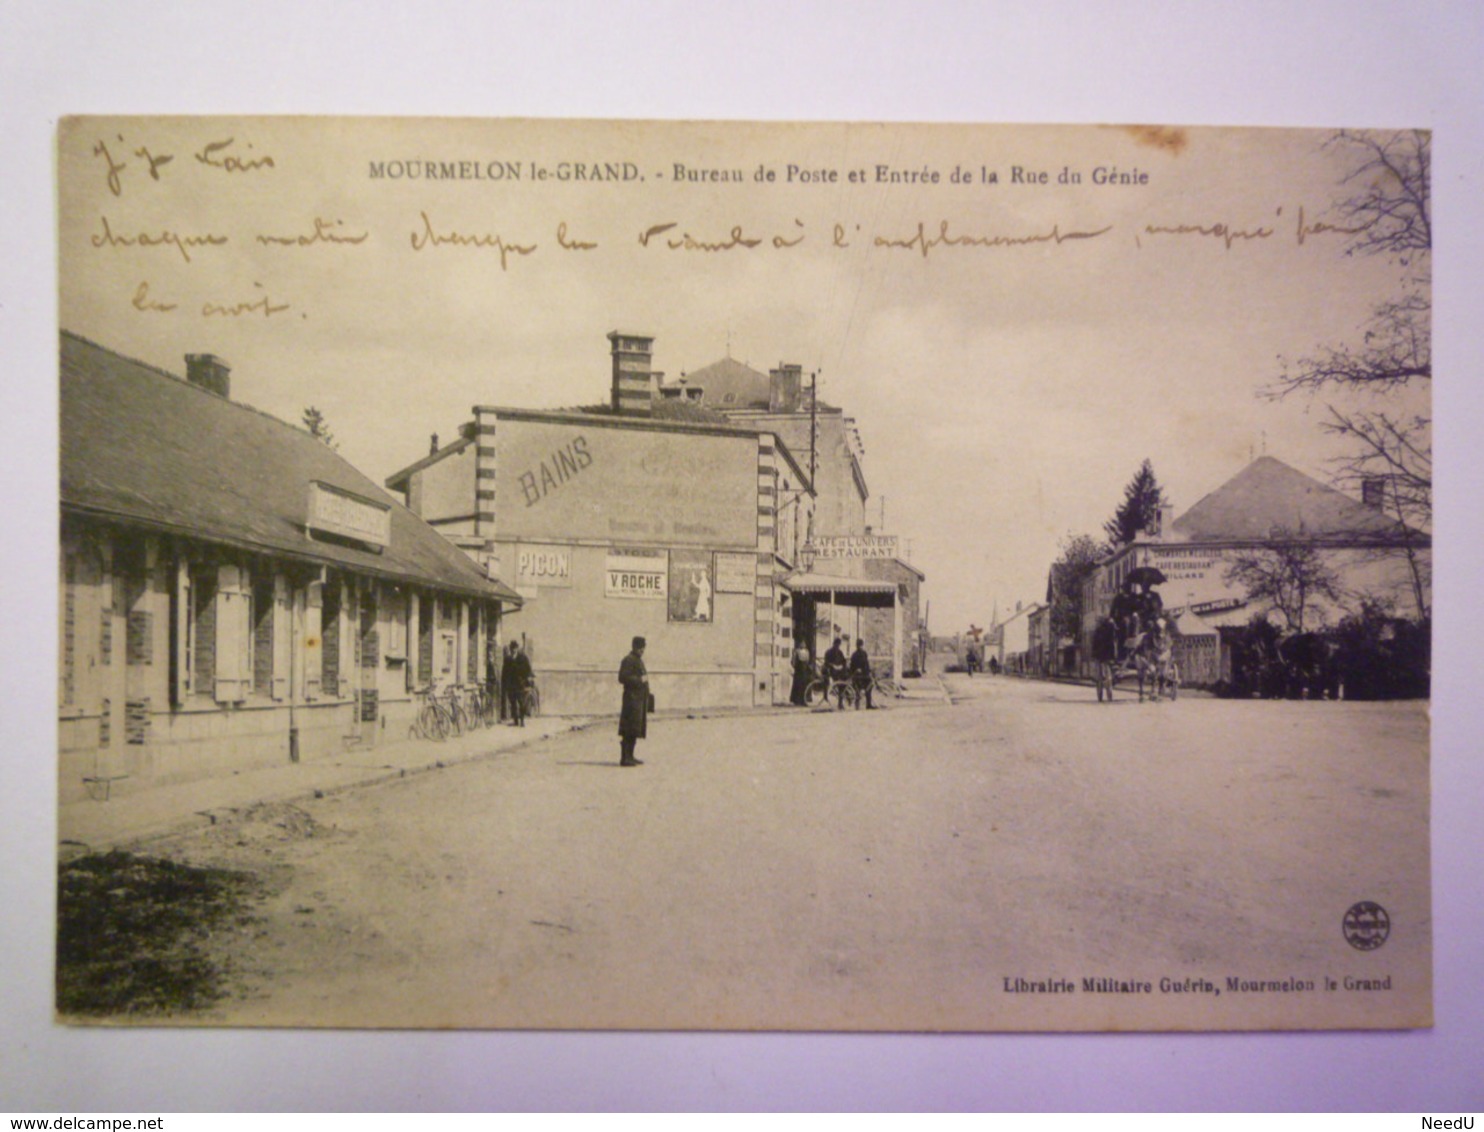 J'y vais
MOURMELON le-GRAND. - Bureau de Poste et Entrée de la Rue du Génie
chaque matin la viande à l'emplacement, marqué par
la croix.
BAINS
PICON
V. ROCHE
CAFÉ DE L'UNIVERS
RESTAURANT
CHAMBRES MEUBLÉES
CAFÉ RESTAURANT
BILLARD
Librairie Militaire Guérin, Mourmelon le Grand
www.delcampe.net
NeedU